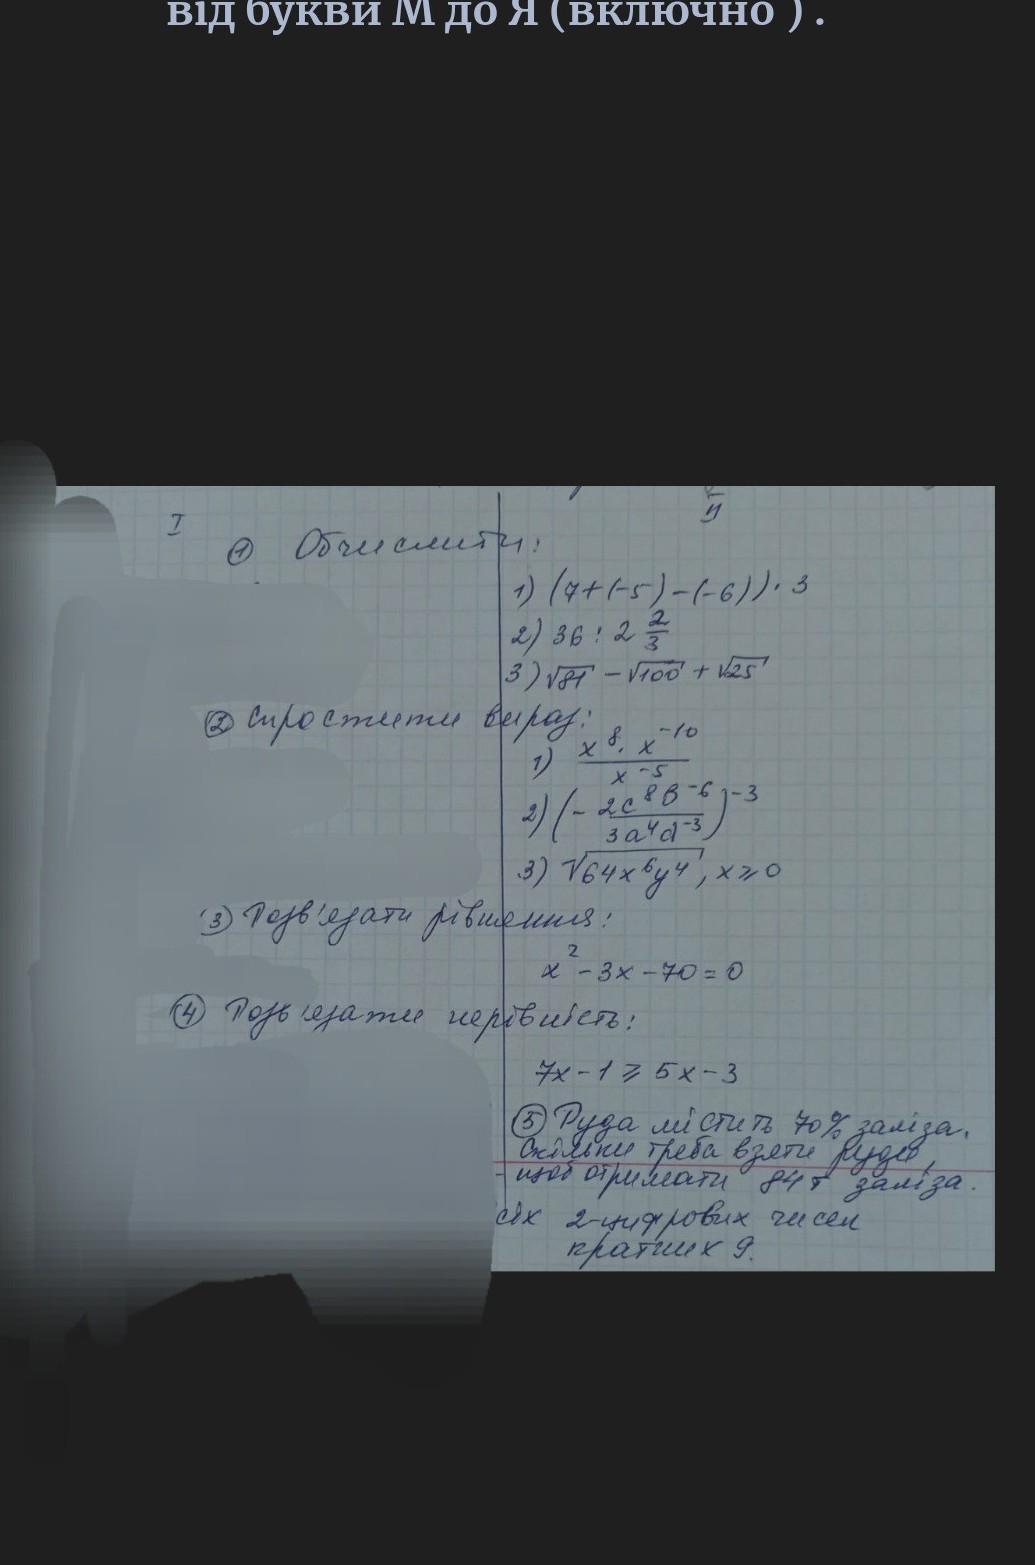 від букви М до Я (включно ) .
I
① Обчислити:
1) (7+(-5)-(-6))·3
2) 36 : 2 2/3
3) √81 - √100 + √25
② Спростити вираз:
1) x⁸·x⁻¹⁰ / x⁻⁵
2) (- 2c⁸b⁻⁶ / 3a⁴d⁻³)⁻³
3) √64x⁶y⁴, x⩾0
③ Розв'язати рівняння:
x² - 3x - 70 = 0
④ Розв'язати нерівність:
7x - 1 ⩾ 5x - 3
⑤ Руда містить 70% заліза.
Скільки треба взяти руди,
щоб отримати 84т заліза.
сіх 2-цифрових чисел
кратних 9.